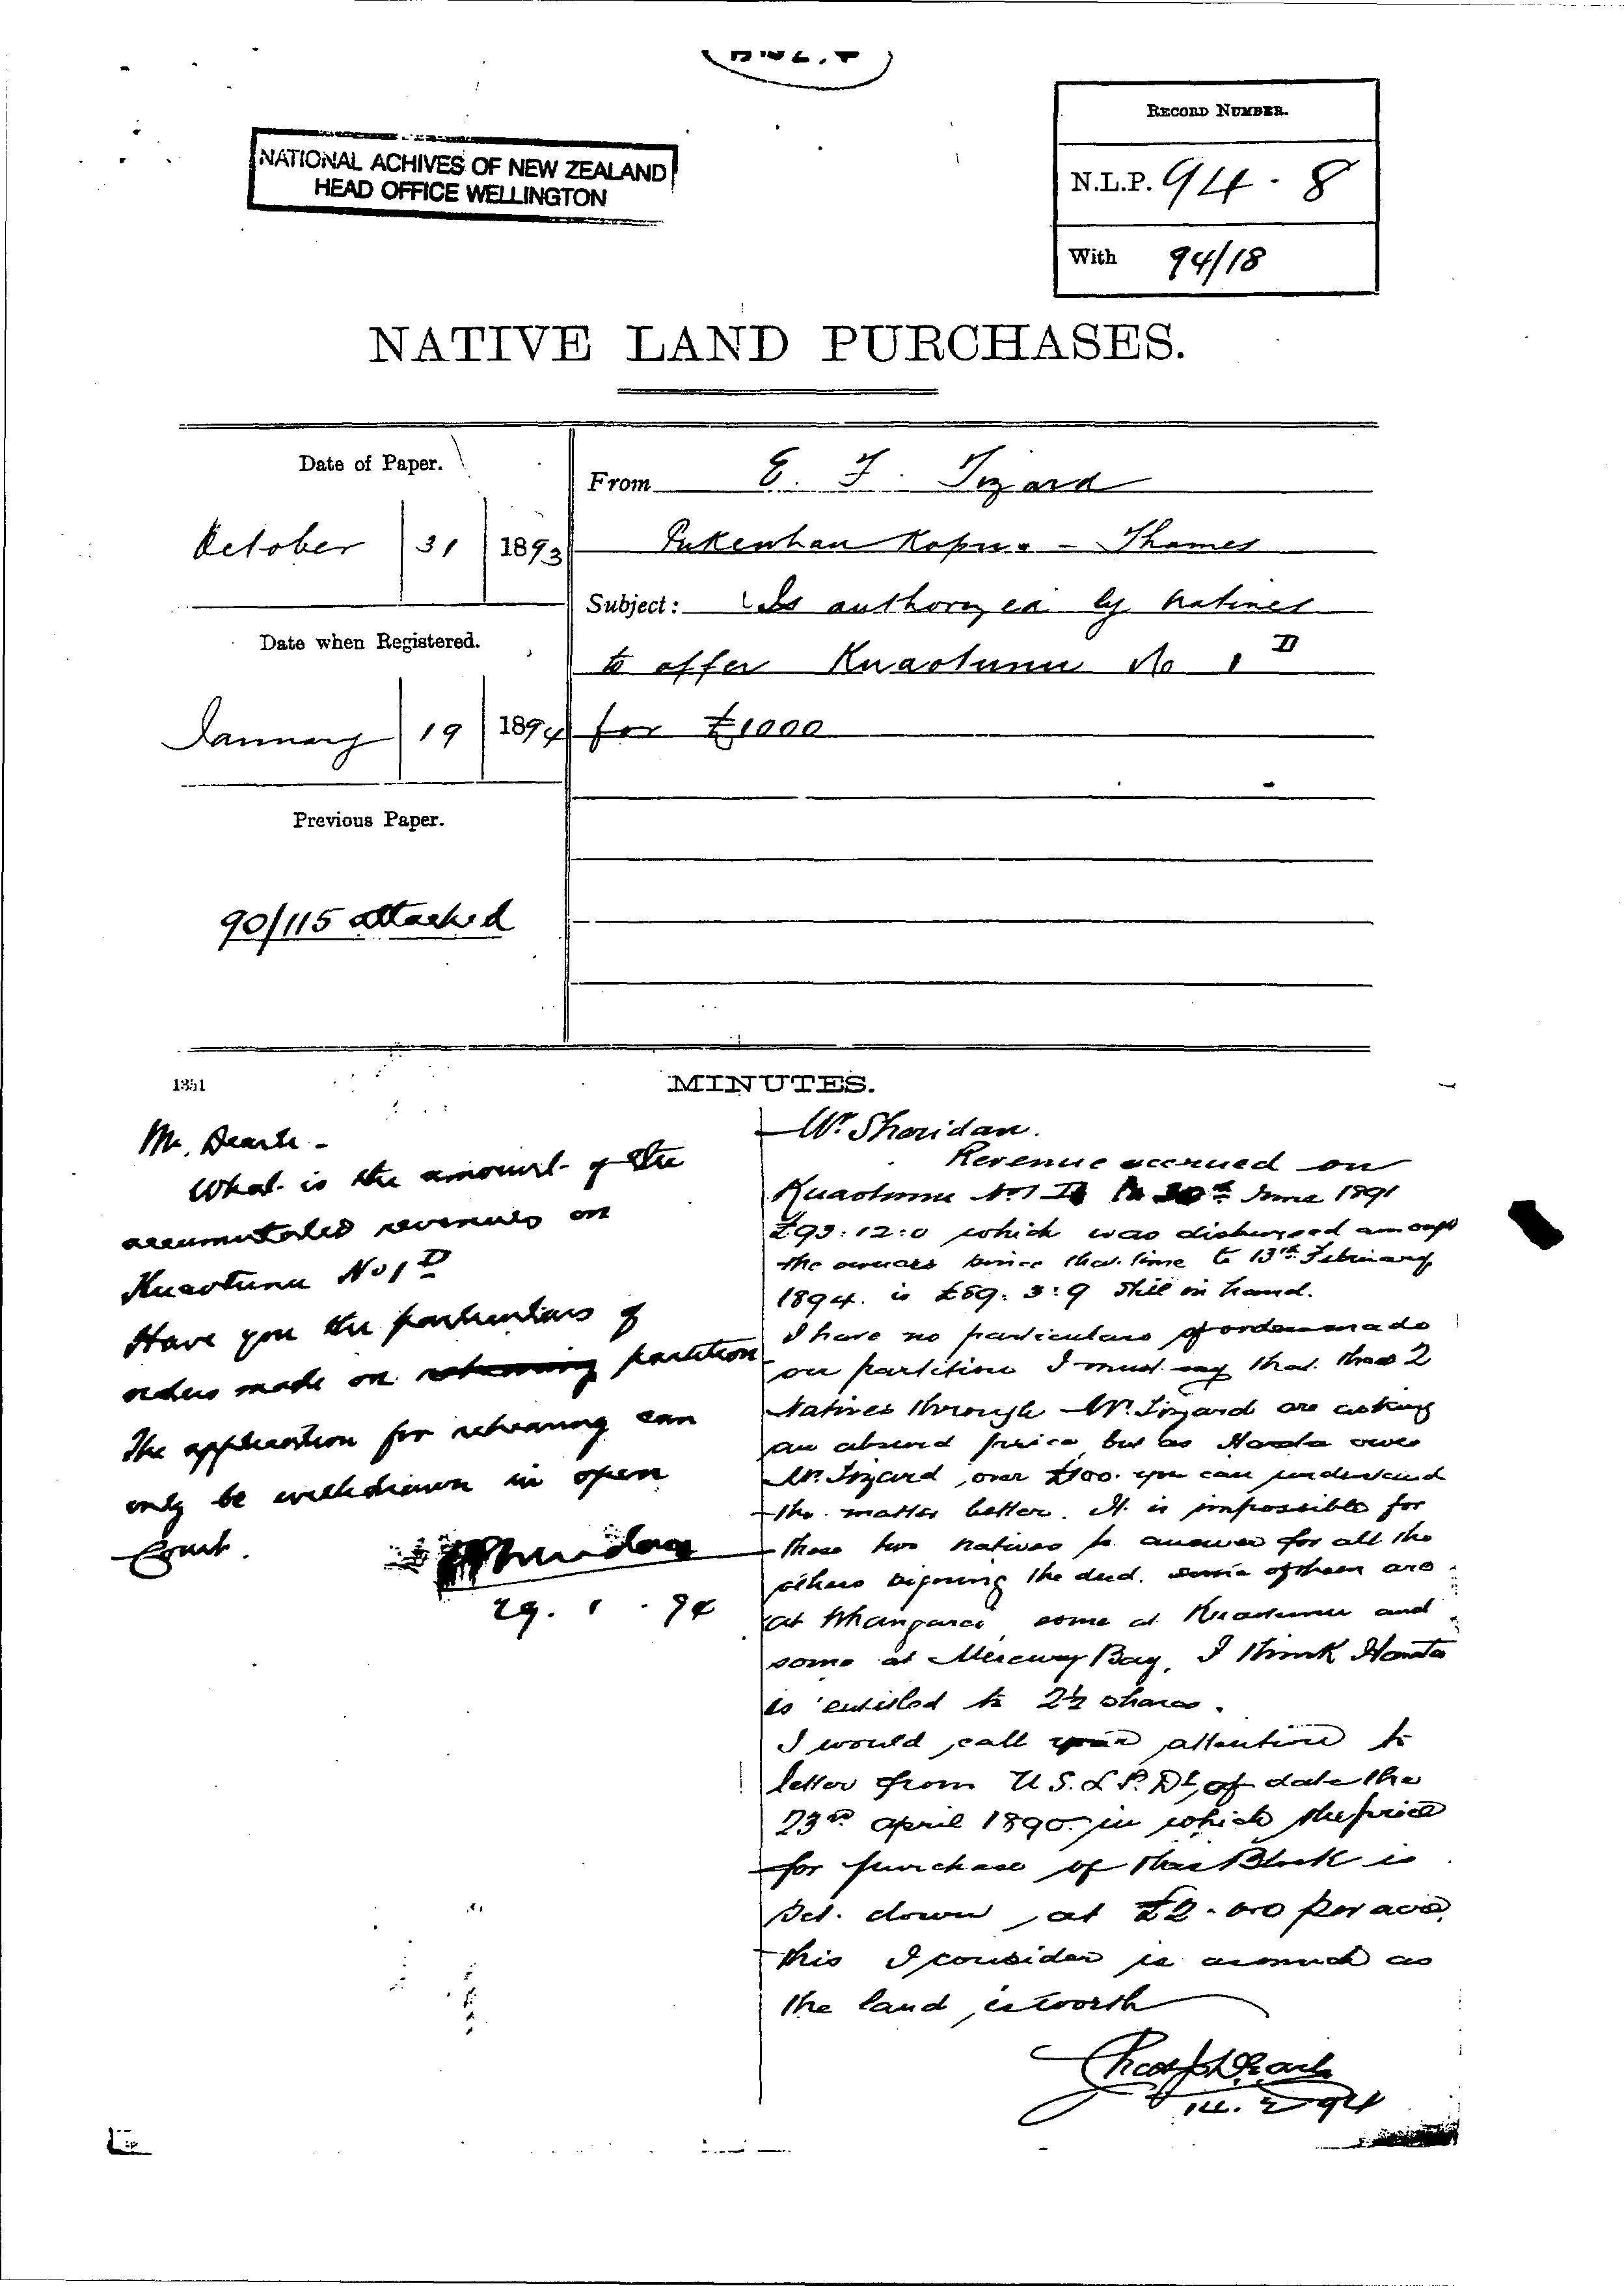 RECORD NUMBER.
N.L.P. 94 . 8
With 94/18
NATIONAL ACHIVES OF NEW ZEALAND
HEAD OFFICE WELLINGTON
NATIVE LAND PURCHASES.
Date of Paper.
October 31 1893
Date when Registered.
January 19 1894
Previous Paper.
90/115 attached
From E. F. Tizard
Kapu - Thames
Subject: Is authorized by natives
to offer Kuaotunu No 1 D
for £1000
1351
MINUTES.
Mr. Dearle -
What is the amount of the
accumulated revenues on
Kuaotunu No 1 D
Have you the particulars of
orders made on rehearing partition
The application for rehearing can
only be withdrawn in open
Court.
Sheridan
29. 1. 94
Mr. Sheridan.
Revenue accrued on
Kuaotunu No 1 D to 30th June 1891
£93:12:0 which was disbursed amongst
the owners since that time to 13th February
1894. is £59:3:9 still in hand.
I have no particulars of orders made
on partition I must say that these 2
Natives through Mr. Tizard are asking
an absurd price but as owes
Mr. Tizard over £100. you can understand
the matter better. It is impossible for
these two natives to answer for all the
others signing the deed. some of them are
at Whangarei some at Kuaotunu and
some at Mercury Bay, I think
is entitled to 2½ shares.
I would call your attention to
letter from U.S. L.P. Dt, of date the
23rd April 1890 in which the price
for purchase of this Block is
set down at £2.0.0 per acre,
this I consider is as much as
the land is worth
Dearle
14. 2. 94